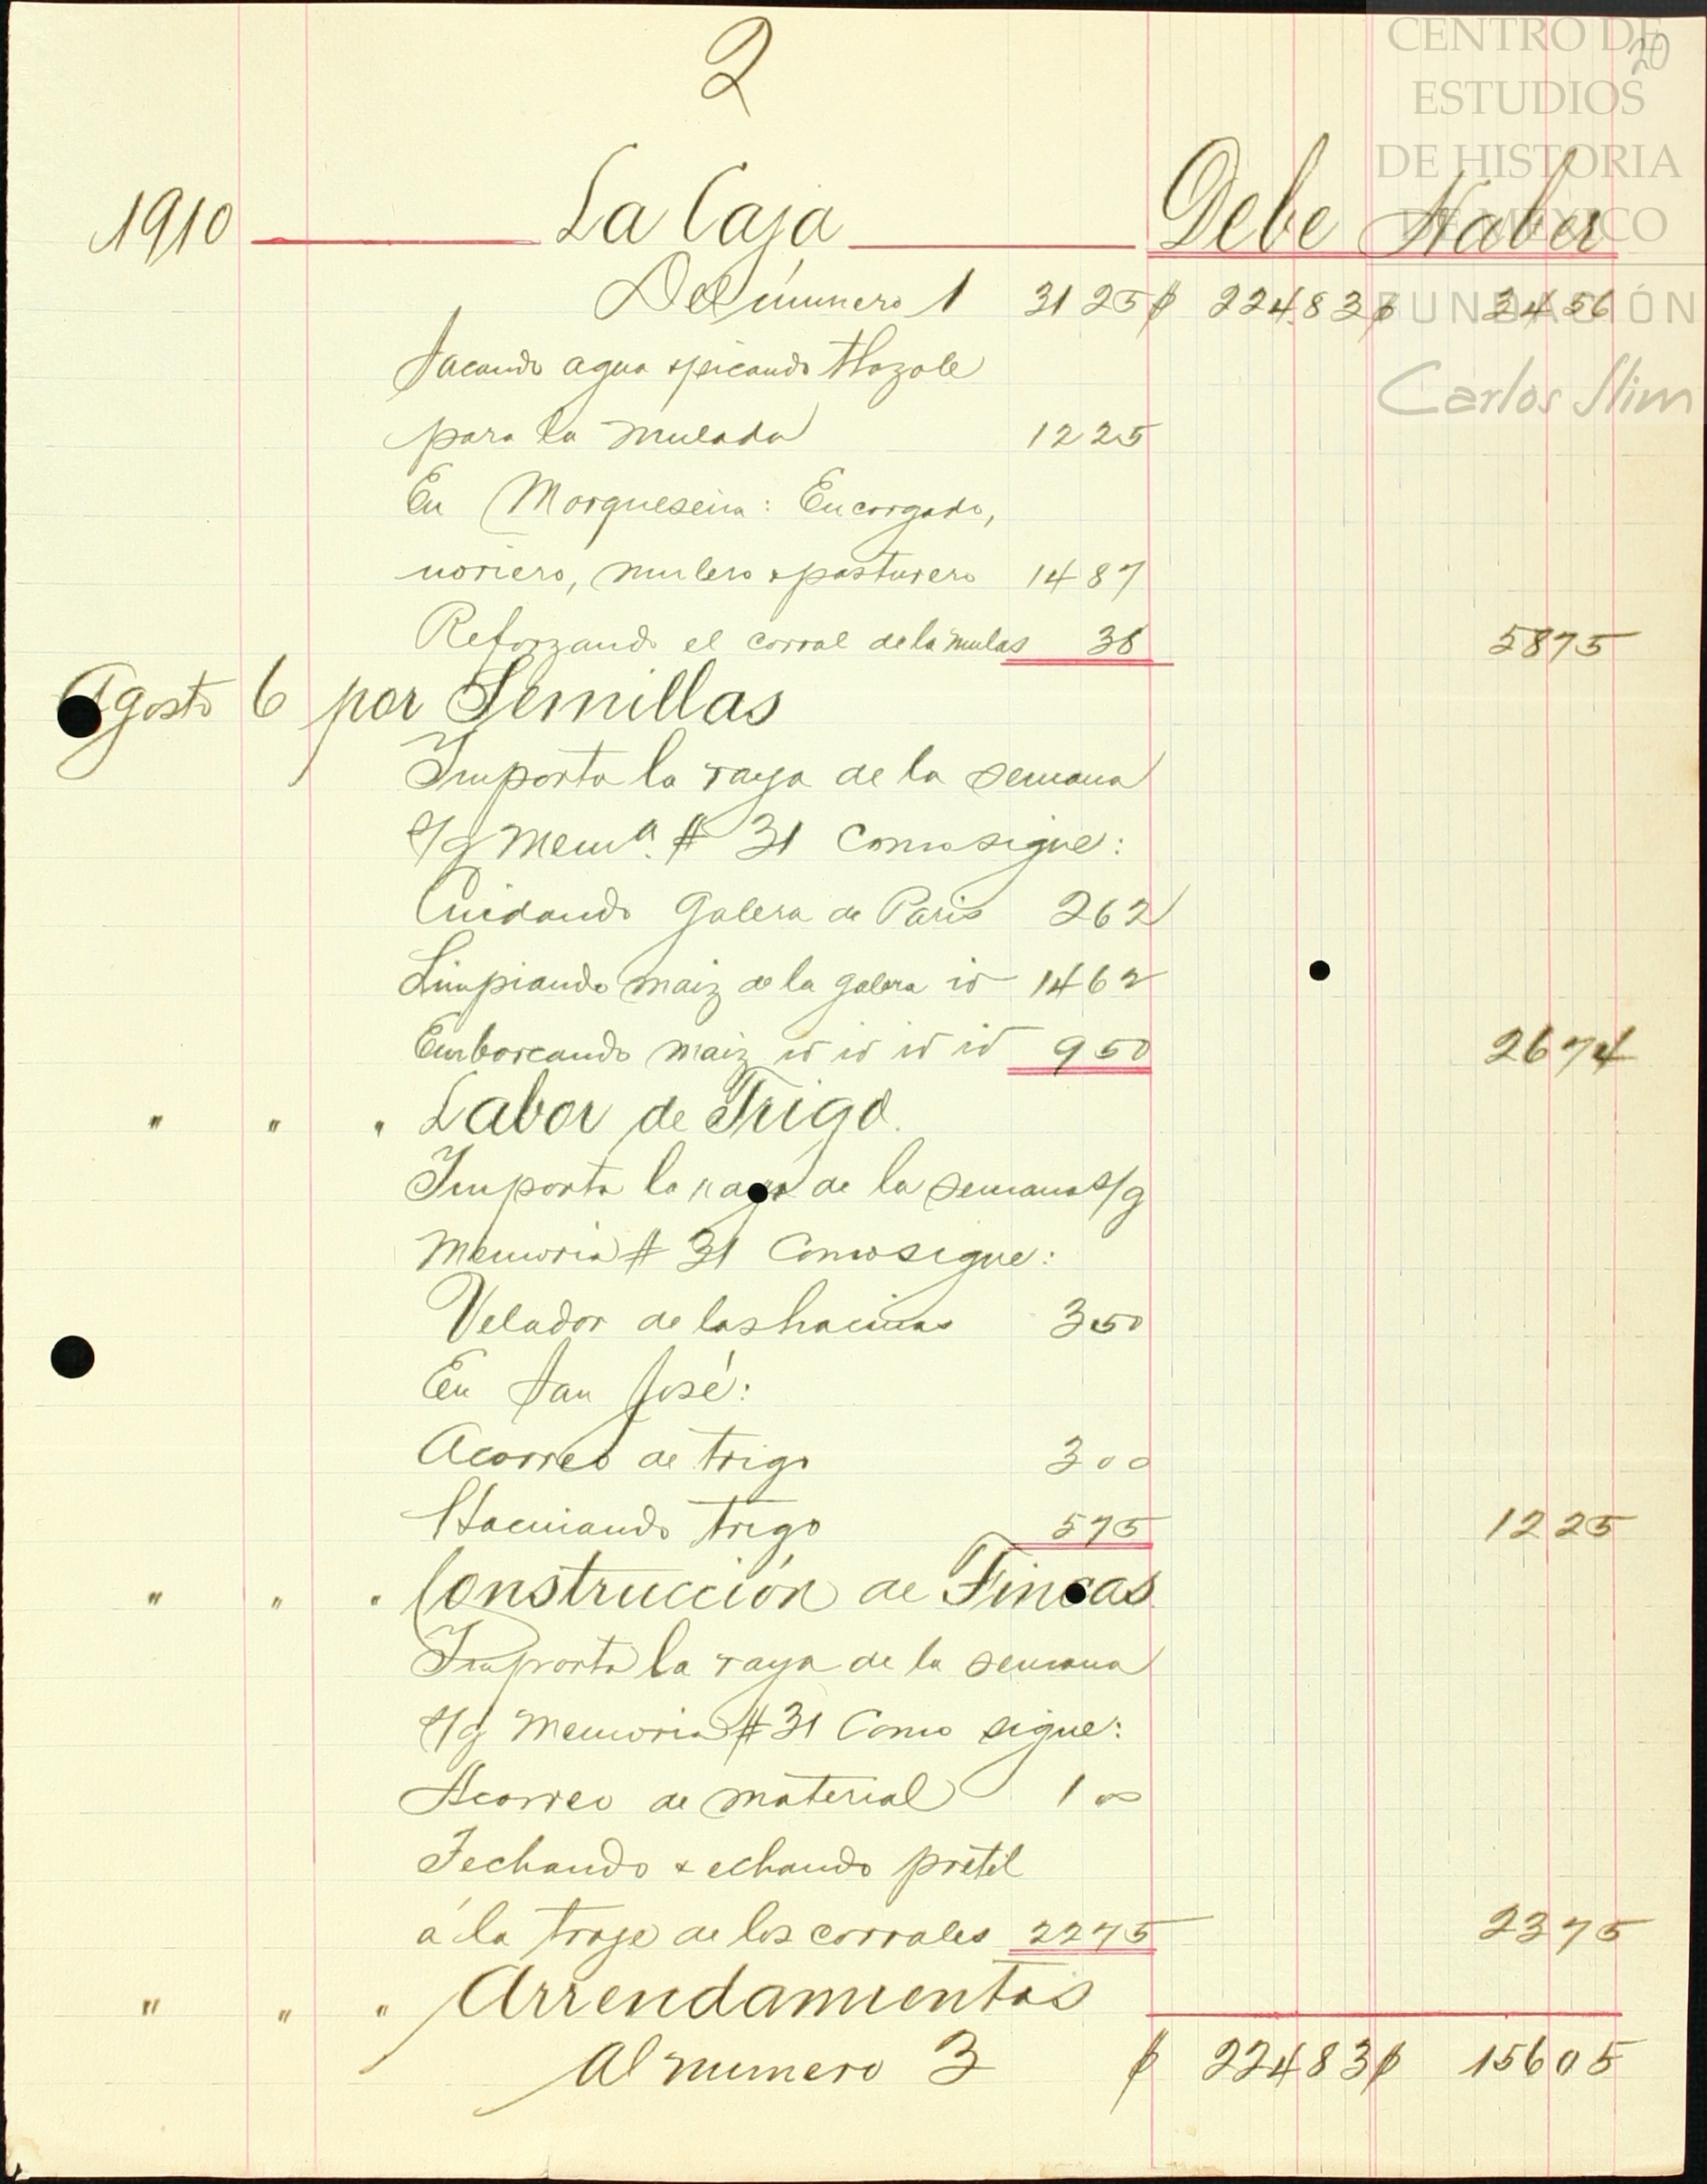 2
20
CENTRO DE
ESTUDIOS
DE HISTORIA
DE MÉXICO
FUNDACIÓN
Carlos Slim
1910 La Caja Debe Haber
Del número 1 31 25 $ 224 83 $ 34 56
Sacando agua & picando tlazole
para la mulada 12 25
En Morqueseia: Encargado,
noriero, mulero & pasturero 14 87
Reforzando el corral de la mulas 38 58 75
Agosto 6 por Semillas
Importa la raya de la semana
s/g Mema. # 31 Como sigue:
Cuidando Galera de Paris 2 62
Limpiando maiz de la galera id 14 62
Emborcando maiz id id id id 9 50 26 74
" " " Labor de Trigo.
Importa la raya de la semana s/g
Memoria # 31 Como sigue:
Velador de las hacinas 3 50
En San José:
Acarreo de trigo 3 00
Hacinando trigo 5 75 12 25
" " " Construcción de Fincas
Importa la raya de la semana
s/g Memoria # 31 Como sigue:
Acarreo de material 1 00
Techando & echando pretil
á la troje de los corrales 22 75 23 75
" " " Arrendamientos
Al numero 3 $ 224 83 $ 156 05